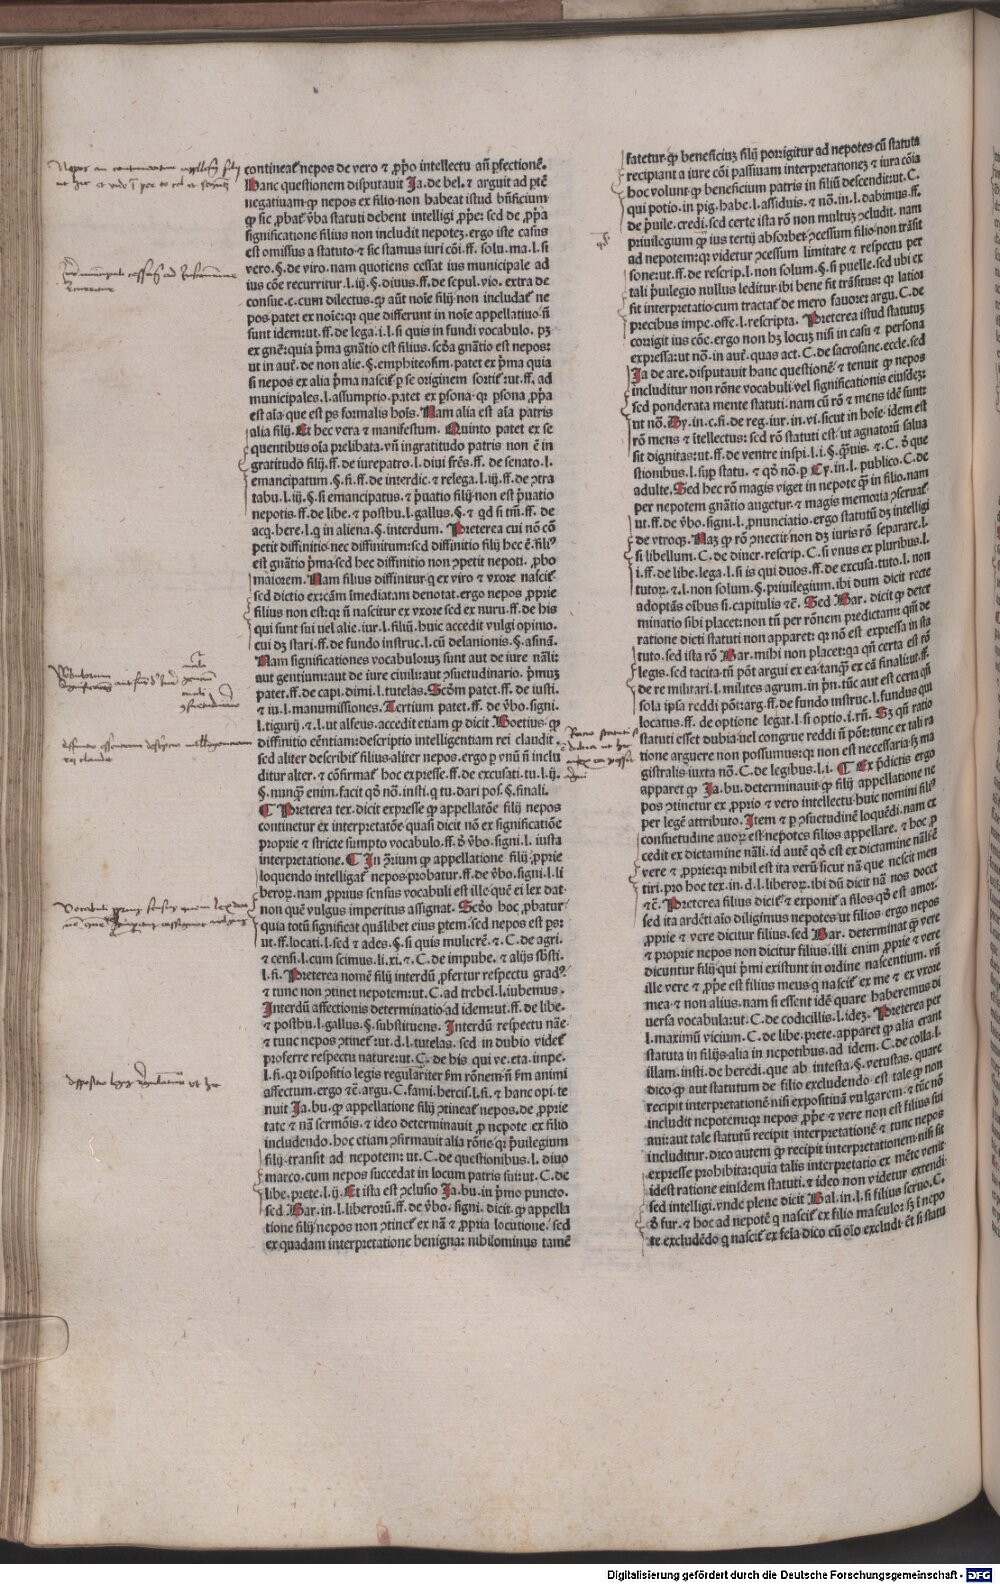 contineat᷑ nepos de vero ⁊ ꝓpͦo intellectu añ ꝑfectionē.
Hanc questionem disputauit Ja. de bel. ⁊ arguit ad ptē
negatiuam ꝙ nepos ex filio non habeat istud bñficium
ꝙ sic ꝓbat᷑ v̾ba statuti debent intelligi ꝓpͤ: sed de ꝓpͥa
significatione filius non includit nepotez. ergo iste casus
est omissus a statuto. ⁊ sic stamus iuri cōi. ff. solu. ma. l. si
vero. §. de viro. nam quotiens cessat ius municipale ad
ius cōe recurritur. l. iij. §. diuus. ff. de sepul. vio. extra de
consue. c. cum dilectus. ꝙ aūt noīe filij non includat᷑ ne
pos patet ex noīe: qꝛ que differunt in noīe appellatiuo ñ
sunt idem: ut. ff. de lega. i. l. si quis in fundi vocabulo. pꝫ
ex gñe: quia pͥma gñatio est filius. scd̓a gñatio est nepos:
ut in aut̄. de non alie. §. emphiteosim. patet ex pͥma quia
si nepos ex alia pͥma nascit᷑ ꝑ se originem sortit᷑: ut. ff. ad
municipales. l. assumptio. patet ex ꝑsona. qꝛ ꝑsona ꝓpͥa
est aīa que est ps formalis hoīs. Nam alia est aīa patris
alia filij. Et hec vera ⁊ manifestum. Quinto patet ex se
quentibus oīa prelibata. vñ ingratitudo patris non ē in
gratitudo filij. ff. de iurepatro. l. diui frēs. ff. de senato. l.
emancipatum. §. fi. ff. de interdic. ⁊ relega. l. iij. ff. de ꝯtra
tabu. l. iij. §. si emancipatus. ⁊ ꝓuatio filij non est ꝓuatio
nepotis. ff. de libe. ⁊ posthu. l. gallus. §. ⁊ qd si tm̄. ff. de
acq. here. l. q in aliena. §. interdum. Preterea cui nō cō
petit diffinitio nec diffinitum: sed diffinitio filij hec ē. filiꝰ
est gnātio pͥma sed hec diffinitio non ꝯpetit nepoti. ꝓbo
maiorem. Nam filius diffinitur q ex viro ⁊ vxore nascit᷑
sed dictio ex: cām īmediatam denotat. ergo nepos ꝓprie
filius non est: qꝛ ñ nascitur ex vxore sed ex nuru. ff. de his
qui sunt sui uel alie. iur. l. filiū. huic accedit vulgi opinio.
cui dꝫ stari. ff. de fundo instruc. l. cū delanionis. §. asinā.
Nam significationes vocabuloruꝫ sunt aut de iure nāli:
aut gentium: aut de iure ciuili: aut ꝯsuetudinario. pͥmuꝫ
patet. ff. de capi. dimi. l. tutelas. Scd̓m patet. ff. de iusti.
⁊ iu. l. manumissiones. Tertium patet. ff. de v̾bo. signi.
l. tigurij. ⁊. l. ut alseus. accedit etiam ꝙ dicit Boetius. ꝙ
diffinitio eēntiam: descriptio intelligentiam rei claudit.
sed aliter describit᷑ filius aliter nepos. ergo ꝑ vnū ñ inclu
ditur alter. ⁊ cōfirmat᷑ hoc expresse. ff. de excusati. tu. l. ij.
§. nunqͣ enim. facit qͦ nō. insti. q tu. dari pos. §. finali.
¶ Preterea tex. dicit expresse ꝙ appellatōe filij nepos
continetur ex interpretatōe quasi dicit nō ex significatiōe
proprie ⁊ stricte sumpto vocabulo. ff. d̓ v̾bo. signi. l. iusta
interpretatione. ¶ In ꝯ̄rium ꝙ appellatione filij ꝓprie
loquendo intelligat᷑ nepos probatur. ff. de v̾bo. signi. l. li
beroꝝ. nam ꝓprius sensus vocabuli est ille quē ei lex dat
non quē vulgus imperitus assignat. Scd̓o hoc ꝓbatur
quia totū significat quālibet eius ptem. sed nepos est ps:
ut. ff. locati. l. sed ⁊ ades. §. si quis mulicrē. ⁊. C. de agri.
⁊ censi. l. cum scimus. li. xi. ⁊. C. de impube. ⁊ alijs sb̄sti.
l. fi. Preterea nomē filij interdū ꝓfertur respectu gradꝰ
⁊ tunc non ꝯtinet nepotem: ut. C. ad trebel. l. iubemus.
Interdū affectionis determinatio ad idem: ut. ff. de libe.
⁊ posthu. l. gallus. §. substituens. Interdū respectu nāe
⁊ tunc nepos ꝯtinet᷑: ut. d. l. tutelas. sed in dubio videt᷑
proferre respectu nature: ut. C. de his qui ve. eta. impe.
l. fi. qꝛ dispositio legis regulariter fm rōnem ñ fm animi
affectum. ergo ⁊c̄. argu. C. fami. hercis. l. fi. ⁊ hanc opi. te
nuit Ja. bu. ꝙ appellatione filij ꝯtineat᷑ nepos. de ꝓprie
tate ⁊ nā sermōis. ⁊ ideo determinauit ꝓ nepote ex filio
includendo. hoc etiam ꝯfirmauit alia rōne: qꝛ pͥuilegium
filij transit ad nepotem: ut. C. de questionibus. l. diuo
marco. cum nepos succedat in locum patris sui: ut. C. de
libe. prete. l. ij. Et ista est ꝯclusio Ja. bu. in pͥmo puncto.
sed Bar. in. l. liberorū. ff. de v̾bo. signi. dicit. ꝙ appella
tione filij nepos non ꝯtinet᷑ ex nā ⁊ ꝓpria locutione. sed
ex quadam interpretatione benigna: nihilominus tamē
fatetur. ꝙ beneficiuꝫ filij porrigitur ad nepotes cū statuta
recipiant a iure cōi passiuam interpretationeꝫ ⁊ iura cōia
hoc volunt ꝙ beneficium patris in filiū descendit: ut. C.
qui potio. in pig. habe. l. assiduis. ⁊ nō. in. l. dabimus. ff.
de pͥuile. credi. sed certe ista rō non multuꝫ ꝯcludit. nam
priuilegium ꝙ ius tertij absorbet ꝓcessum filio non trāsit
ad nepotem: qꝛ videtur ꝓcessum limitare ⁊ respectu per
sone: ut. ff. de rescrip. l. non solum. §. si puelle. sed ubi ex
tali pͥuilegio nullus leditur ibi bene fit trāsitus: qꝛ latior
fit interpretatio cum tractat᷑ de mero fauore: argu. C. de
precibus impe. offe. l. rescripta. Preterea istud statutuꝫ
corrigit ius cōe. ergo non hꝫ locuꝫ nisi in casu ⁊ persona
expressa: ut nō. in aut̄. quas act. C. de sacrosanc. eccle. sed
Ja de are. disputauit hanc questionē. ⁊ tenuit ꝙ nepos
includitur non rōne vocabuli vel significationis eiusdeꝫ:
sed ponderata mente statuti. nam cū rō ⁊ mens idē sunt:
ut nō. Dy. in. c. fi. de reg. iur. in. vi. sicut in hoīe. idem est
rō mens ⁊ ītellectus: sed rō statuti est. ut agnatorū salua
sit dignitas: ut. ff. de ventre inspi. l. i. §. qͣuis. ⁊. C. d̓ que
stionibus. l. suꝑ statu. ⁊ qͦ nō. ꝑ Cy. in. l. publico. C. de
adulte. Sed hec rō magis viget in nepote qͣ in filio. nam
per nepotem gnātio augetur ⁊ magis memoria ꝯseruat᷑:
ut. ff. de v̾bo. signi. l. ꝓnunciatio. ergo statutū dꝫ intelligi
de vtroqꝫ. Naꝫ qꝛ rō ꝯnectit non dꝫ iuris rō separare. l.
si libellum. C. de diuer. rescrip. C. si vnus ex pluribus. l.
i. ff. de libe. lega. l. si is qui duos. ff. de excusa. tuto. l. non
tutoꝝ. ⁊. l. non solum. §. priuilegium. ibi dum dicit recte
adoptās oībus si. capitulis ⁊c̄. Sed Bar. dicit ꝙ deter
minatio sibi placet: non tn̄ per rōnem predictam: qm̄ de
ratione dicti statuti non apparet: qꝛ nō est expressa in sta
tuto. sed ista rō Bar. mihi non placet: qa qn̄ certa est rō
legis. sed tacita: tn̄ pōt argui ex ea tanqͣ ex cā finali: ut. ff.
de re militari. l. milites agrum. in pn̄. tūc aut est certa qꝫ
sola ipsa reddi pōt: arg. ff. de fundo instruc. l. fundus qui
locatus. ff. de optione legat. l. si optio. i. rn̄. Sꝫ qn̄ ratio
statuti esset dubia vel congrue reddi ñ pōt: tunc ex tali ra
tione arguere non possumus: qꝛ non est necessaria sꝫ ma
gistralis: iuxta nō. C. de legibus. l. i. ¶ Ex pͥdictis ergo
apparet ꝙ Ja. bu. determinauit. ꝙ filij appellatione ne
pos ꝯtinetur ex ꝓprio ⁊ vero intellectu huic nomini filiꝰ
per legē attributo. Item ⁊ ꝑ ꝯsuetudinē loquēdi. nam ex
consuetudine auoꝝ est nepotes filios appellare. ⁊ hoc ꝓ
cedit ex dictamine nāli. id autē qͦ est ex dictamine nāli ē
vere ⁊ ꝓprie: qꝛ nihil est ita verū sicut nā que nescit men
tiri. pro hoc tex. in. d. l. liberoꝝ. ibi dū dicit nā nos docet
⁊c̄. Preterea filius dicit᷑ ⁊ exponit᷑ a filos qͦ est amor.
sed ita ardēti aīo diligimus nepotes ut filios. ergo nepos
ꝓprie ⁊ vere dicitur filius. sed Bar. determinat ꝙ vere
⁊ proprie nepos non dicitur filius. illi enim ꝓprie ⁊ vere
dicuntur filij qui pͥmi existunt in ordine nascentium. vñ
ille vere ⁊ ꝓpͤ est filius meus q nascit᷑ ex me ⁊ ex vxore
mea ⁊ non alius. nam si essent idē quare haberemus di
uersa vocabula: ut. C. de codicillis. l. ideꝫ. Preterea per
l. maximū vicium. C. de libe. prete. apparet ꝙ alia erant
statuta in filijs: alia in nepotibus. ad idem. C. de colla. l.
illam. insti. de heredi. que ab intesta. §. vetustas. quare
dico ꝙ aut statutum de filio excludendo est tale ꝙ non
recipit interpretationē nisi expositiuā vulgarem. ⁊ tūc nō
includit nepotem: qꝛ nepos ꝓpͤ ⁊ vere non est filius sui
aui: aut tale statutū recipit interpretationē ⁊ tunc nepos
includitur. dico autem ꝙ recipit interpretationem nisi sit
expresse prohibita: quia talis interpretatio ex mēte venit
idest ratione eiusdem statuti. ⁊ ideo non videtur extendi.
sed intelligi. vnde plene dicit Bal. in. l. si filius seruo. C.
d̓ fur. ⁊ hoc ad nepotē q nascit᷑ ex filio masculo: sꝫ ī nepo
te excludēdo q nascit᷑ ex fēla dico eū oīo excludi ēt si statu
Digitalisierung gefördert durch die Deutsche Forschungsgemeinschaft - DFG